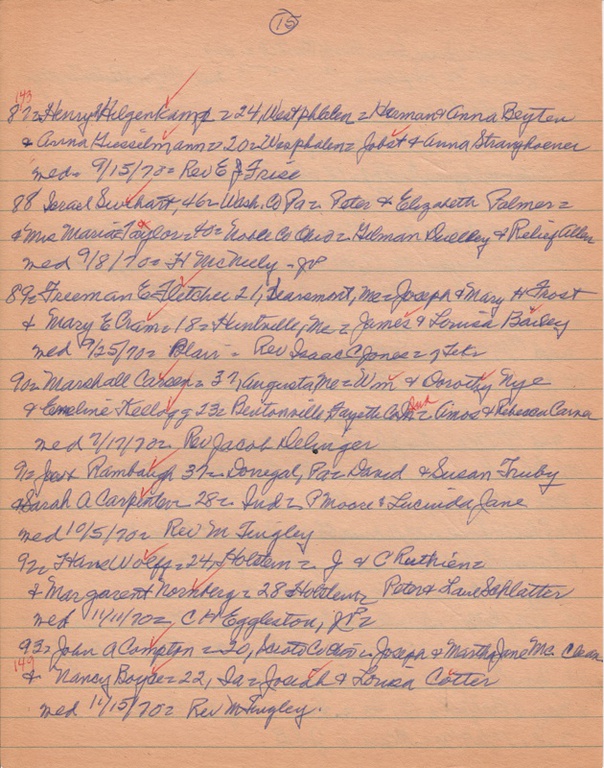 15
143
87= Henry Hilgenkamp = 24, Westphalen = Herman & Anna Beyten
& Anna Giesselmann = 20 = Wesphalen = Jobst & Anna Stranghoener
med = 9/15/70 = Rev E J Frise
88 Israel Swihart, 46 = Wash. Co Pa = Peter & Elizabeth Palmer =
& Mrs Maria Taylor = 40 = Noble Co Ohio = Gilman Dudley & Relief Allen
med 9/8/70 = H McNeely - JP
89 = Freeman E Fletcher 21, Me = Joseph & Mary H Frost
& Mary E Cram = 18 = Huntville, Me = James & Louisa Bailey
med 9/25/70 = Blair = Rev Isaac C Jones =
90 = Marshall Carsen = 37, Augusta, Me = Wm & Dorothy Nye
& Emeline Kellogg 23 = Bentonville, Fayette Co Ind = Amos & Rebecca Carver
med 7/17/70 = Rev Jacob Delinger
91 = Rambaugh 37 = Donegal, Pa = David & Susan Truby
& Sarah A Carpenter 28 = Ind = P Moore & Lucinda Jane
med 10/5/70 = Rev M Tingley
92 = Hans Wolff = 24, Holstein = J & C Ruthien =
& Margarent Nornberg = 28 Holstein Peter & Schlatter
med 11/11/70 = C H Eggleston, JP =
93 = John A Compton = 20, Scioto Co Ohio = Joseph & Martha Jane Mc Clean
149
& Nancy Boyde = 22, Ia = Josiah & Louisa Cotter
med 11/15/70 = Rev M Tingley.